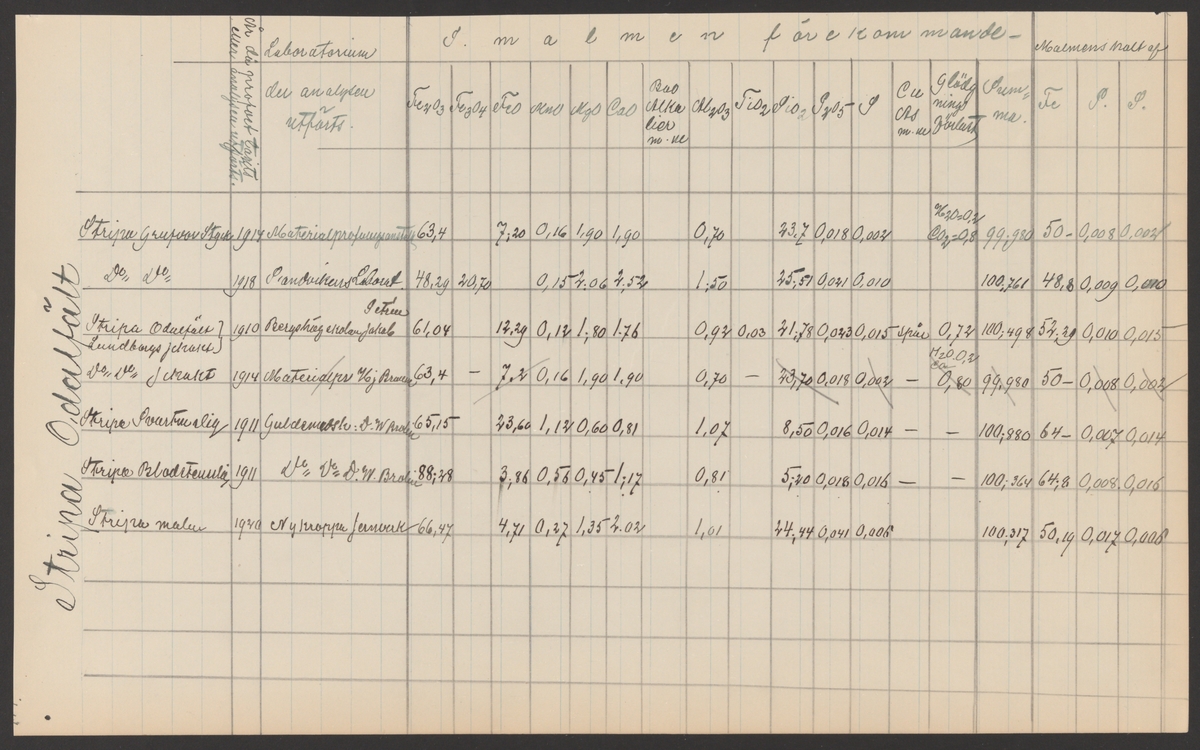 Stripa Odalfält
År då profvet tagits
eller analysen utförts.
Laboratorium
der analysen
utförts.
I malmen förekommande
Malmens halt af
Fe2O3 Fe3O4 FeO MnO MgO CaO BaO Alkalier m.m. Al2O3 TiO2 SiO2 P2O5 S Cu As m.m. Glödgnings Förlust Summa. Fe P. S.
Stripa Grufvor Styck 1914 Materialprofningsanstalt 63,4 7,20 0,16 1,90 1,90 0,70 23,7 0,018 0,002 H2O=0,2 CO2=0,8 99,980 50- 0,008 0,002
Do Do 1918 Sandvikens Laborat 48,29 20,70 0,15 2.06 2,52 1,50 25,51 0,021 0,010 100,761 48,8 0,009 0,010
Stripa Odalfält 1910 Bergshögskolan Petrén 61,04 12,29 0,12 1,80 1.76 0,92 0,03 21,78 0,023 0,015 spår 0,72 100,498 52,29 0,010 0,015
Lundbergs schakt
Do Do schakt 1914 Materialpr 63,4 - 7,2 0,16 1,90 1,90 0,70 - 23,70 0,018 0,002 - H2O 0,2 0,80 99,980 50- 0,008 0,002
Stripa Svartmalm 1911 65,15 23,60 1,12 0,60 0,81 1,07 8,50 0,016 0,014 - - 100,880 64- 0,007 0,014
Stripa Blodstensslig 1911 Do Do D. W. Brolin 88,28 3,86 0,56 0,45 1,17 0,81 5,20 0,018 0,016 - - 100,364 64,8 0,008 0,016
Stripa malm 1920 Nykroppa Jernverk 66,47 4,71 0,27 1,35 2.02 1,01 24,44 0,041 0,006 100,317 50,19 0,017 0,006